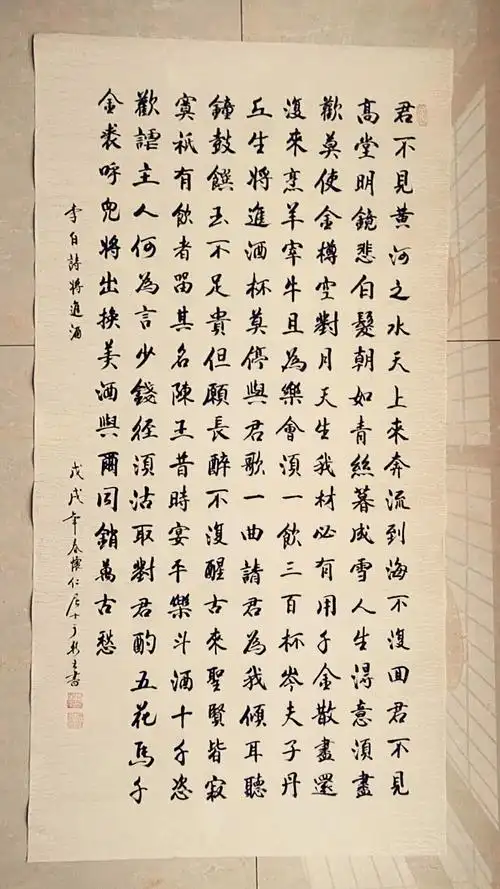 君不見黃河之水天上來奔流到海不復回君不見
高堂明鏡悲白髮朝如青絲暮成雪人生得意須盡
歡莫使金樽空對月天生我材必有用千金散盡還
復來烹羊宰牛且為樂會須一飲三百杯岑夫子丹
丘生將進酒杯莫停與君歌一曲請君為我傾耳聽
鐘鼓饌玉不足貴但願長醉不復醒古來聖賢皆寂
寞祇有飲者留其名陳王昔時宴平樂斗酒十千恣
歡謔主人何為言少錢徑須沽取對君酌五花馬千
金裘呼兒將出換美酒與爾同銷萬古愁
李白詩將進酒
戊戌年春懷仁居士于書